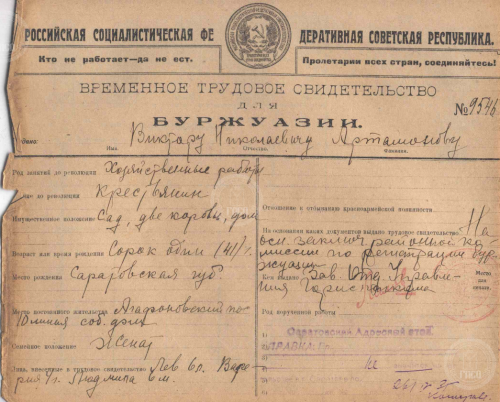 РОССИЙСКАЯ СОЦИАЛИСТИЧЕСКАЯ ФЕ ДЕРАТИВНАЯ СОВЕТСКАЯ РЕСПУБЛИКА.
Кто не работает—да не ест. Пролетарии всех стран, соединяйтесь!
ВРЕМЕННОЕ ТРУДОВОЕ СВИДЕТЕЛЬСТВО
ДЛЯ
БУРЖУАЗИИ.
№ 9546
дано: Виктару Николаевичу Артамонову
Имя Отчество Фамилия.
Род занятий до революции Хозяйственные работы
до революции Крестьянин
Имущественное положение Сад, две коровы, дом
Возраст или время рождения Сорок один (41) г.
Место рождения Саратовская губ
Место постоянного жительства Агафоновский пос
10 линия соб. дом
Семейное положение Женат
Лица, внесенные в трудовое свидетельство Лев 6 л. Вале
рия Людмила 6 м.
Отношение к отбыванию красноармейской повинности
На основании каких документов выдано трудовое свидетельство: На
осн. заключ районной ко
миссии по регистрации бур
жуазии
Кем выдано Зав. Отд. Управле
ния
Место для печати.
Род порученной работы
Саратовский Адресный стол
СПРАВКА: